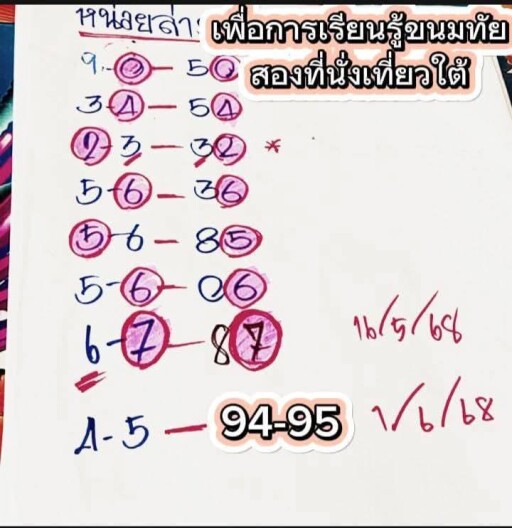 หน่วยล่าง
เพื่อการเรียนรู้ขนมทัย
สองที่นั่งเที่ยวใต้
9-0-50
3-4-54
2-3-32 *
5-6-36
5-6-85
5-6-06
6-7-87
16/5/68
4-5-94-95
1/6/68